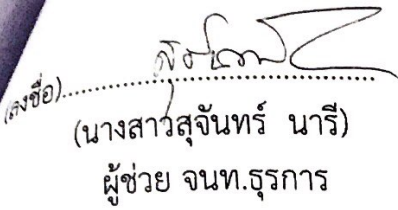 (ลงชื่อ)....................................
(นางสาวสุจันทร์ นารี)
ผู้ช่วย จนท.ธุรการ